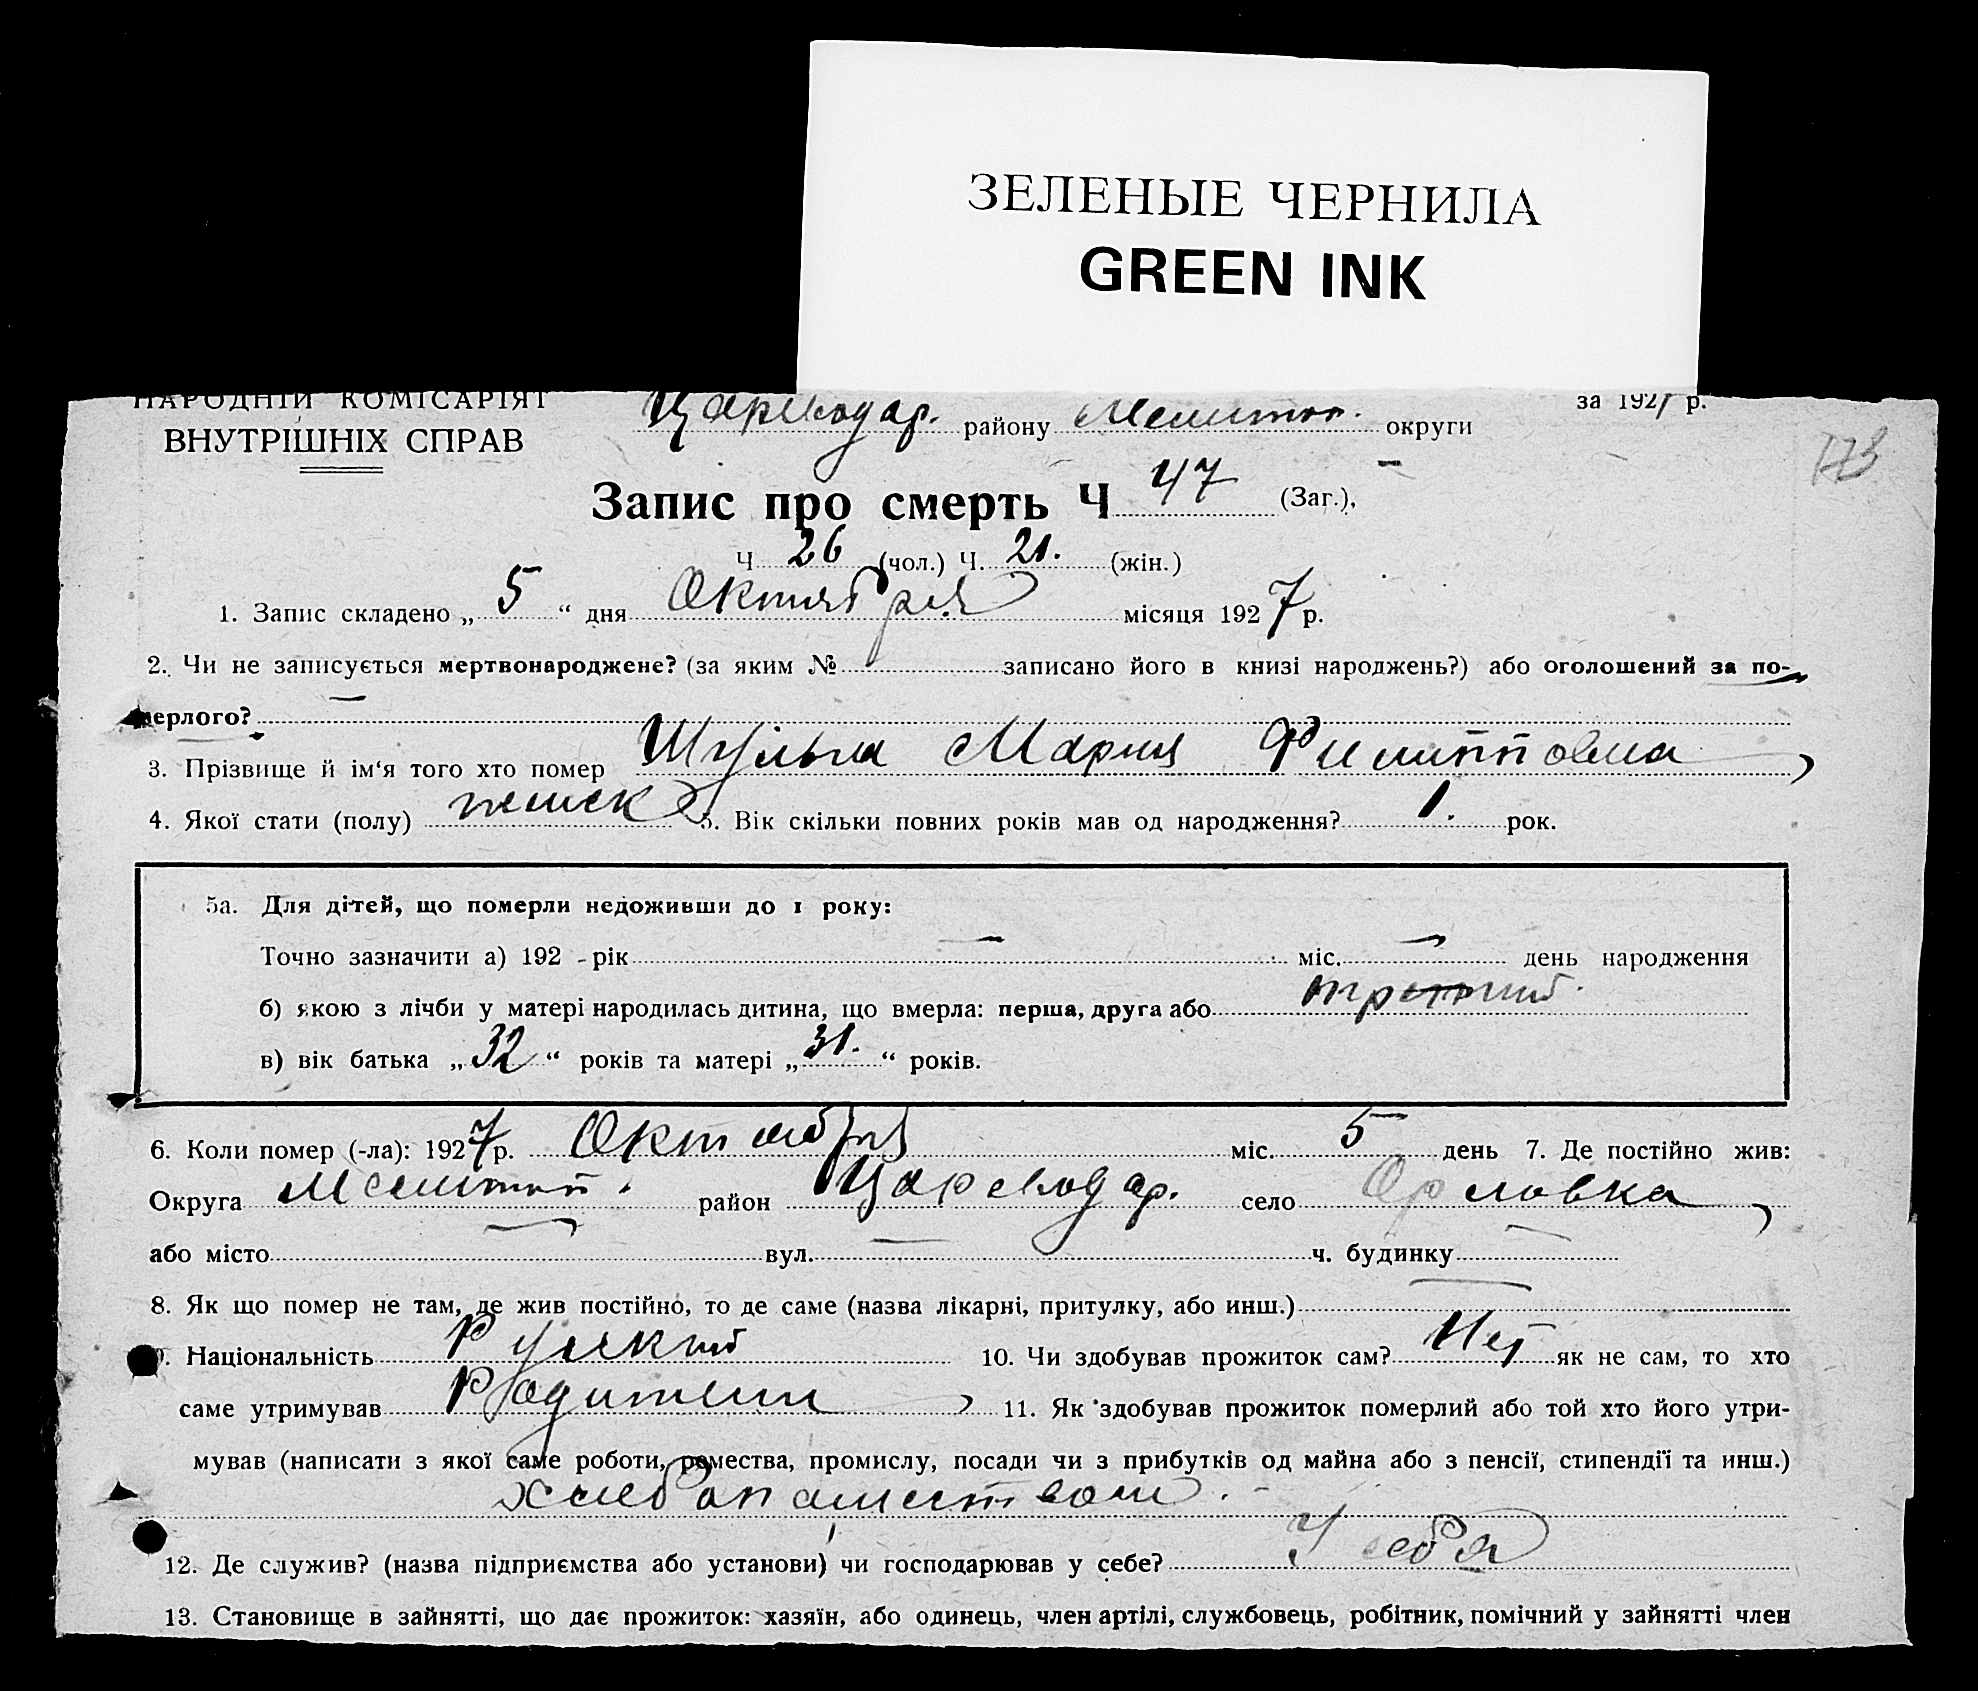 ЗЕЛЕНЫЕ ЧЕРНИЛА
GREEN INK
НАРОДНІЙ КОМІСАРІЯТ
ВНУТРІШНІХ СПРАВ
за 1927 р.
Цареводар. району Мелитоп. округи
173
Запис про смерть Ч 47 (Заг.),
Ч 26 (чол.) Ч. 21. (жін.)
1. Запис складено „ 5 “ дня Октября місяця 1927 р.
2. Чи не записується мертвонароджене? (за яким № записано його в книзі народжень?) або оголошений за по-
мерлого? —
3. Прізвище й ім'я того хто помер Мария Филипповна
4. Якої стати (полу) женск 5. Вік скільки повних років мав од народження? 1. рок.
5а. Для дітей, що померли недоживши до 1 року:
Точно зазначити а) 192 - рік — міс. — день народження
б) якою з лічби у матері народилась дитина, що вмерла: перша, друга або
в) вік батька „ 32 “ років та матері „ 31. “ років.
6. Коли помер (-ла): 1927 р. Октября міс. 5 день 7. Де постійно жив:
Округа Мелитоп. район Цареводар. село Орловка
або місто — вул. — ч. будинку —
8. Як що помер не там, де жив постійно, то де саме (назва лікарні, притулку, або инш.) —
9. Національність Руский 10. Чи здобував прожиток сам? Нет як не сам, то хто
саме утримував Родители 11. Як здобував прожиток померлий або той хто його утри-
мував (написати з якої саме роботи, ремества, промислу, посади чи з прибутків од майна або з пенсії, стипендії та инш.)
хлебопашеством.
12. Де служив? (назва підприємства або установи) чи господарював у себе? У себя
13. Становище в зайнятті, що дає прожиток: хазяїн, або одинець, член артілі, службовець, робітник, помічний у зайнятті член